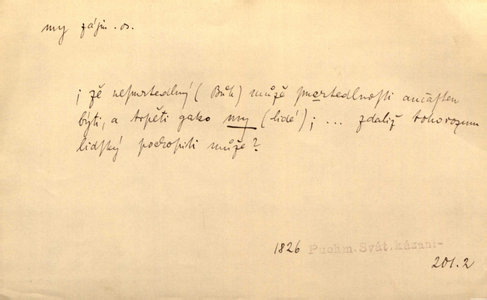 my zájm. os.
; že nesmrtedlný (Bůh) může smrtedlnosti aučasten
býti, a trpěti gako my (lidé); ... zdaliž tohorozum
lidský pochopiti může?
1826 Puchm. Svát. kázan:-
201.2